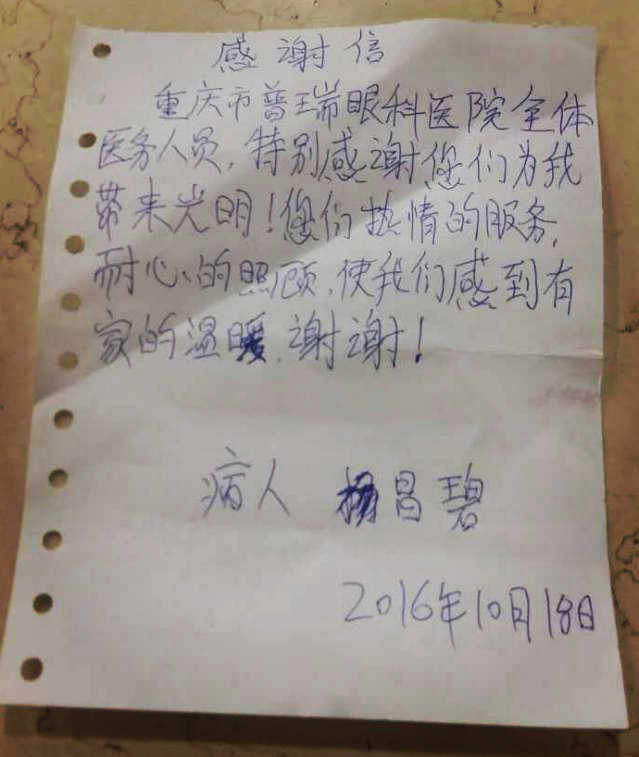 感谢信
重庆市普瑞眼科医院全体
医务人员,特别感谢您们为我
带来光明!您们热情的服务,
耐心的照顾,使我们感到有
家的温暖,谢谢!
病人 杨昌碧
2016年10月18日